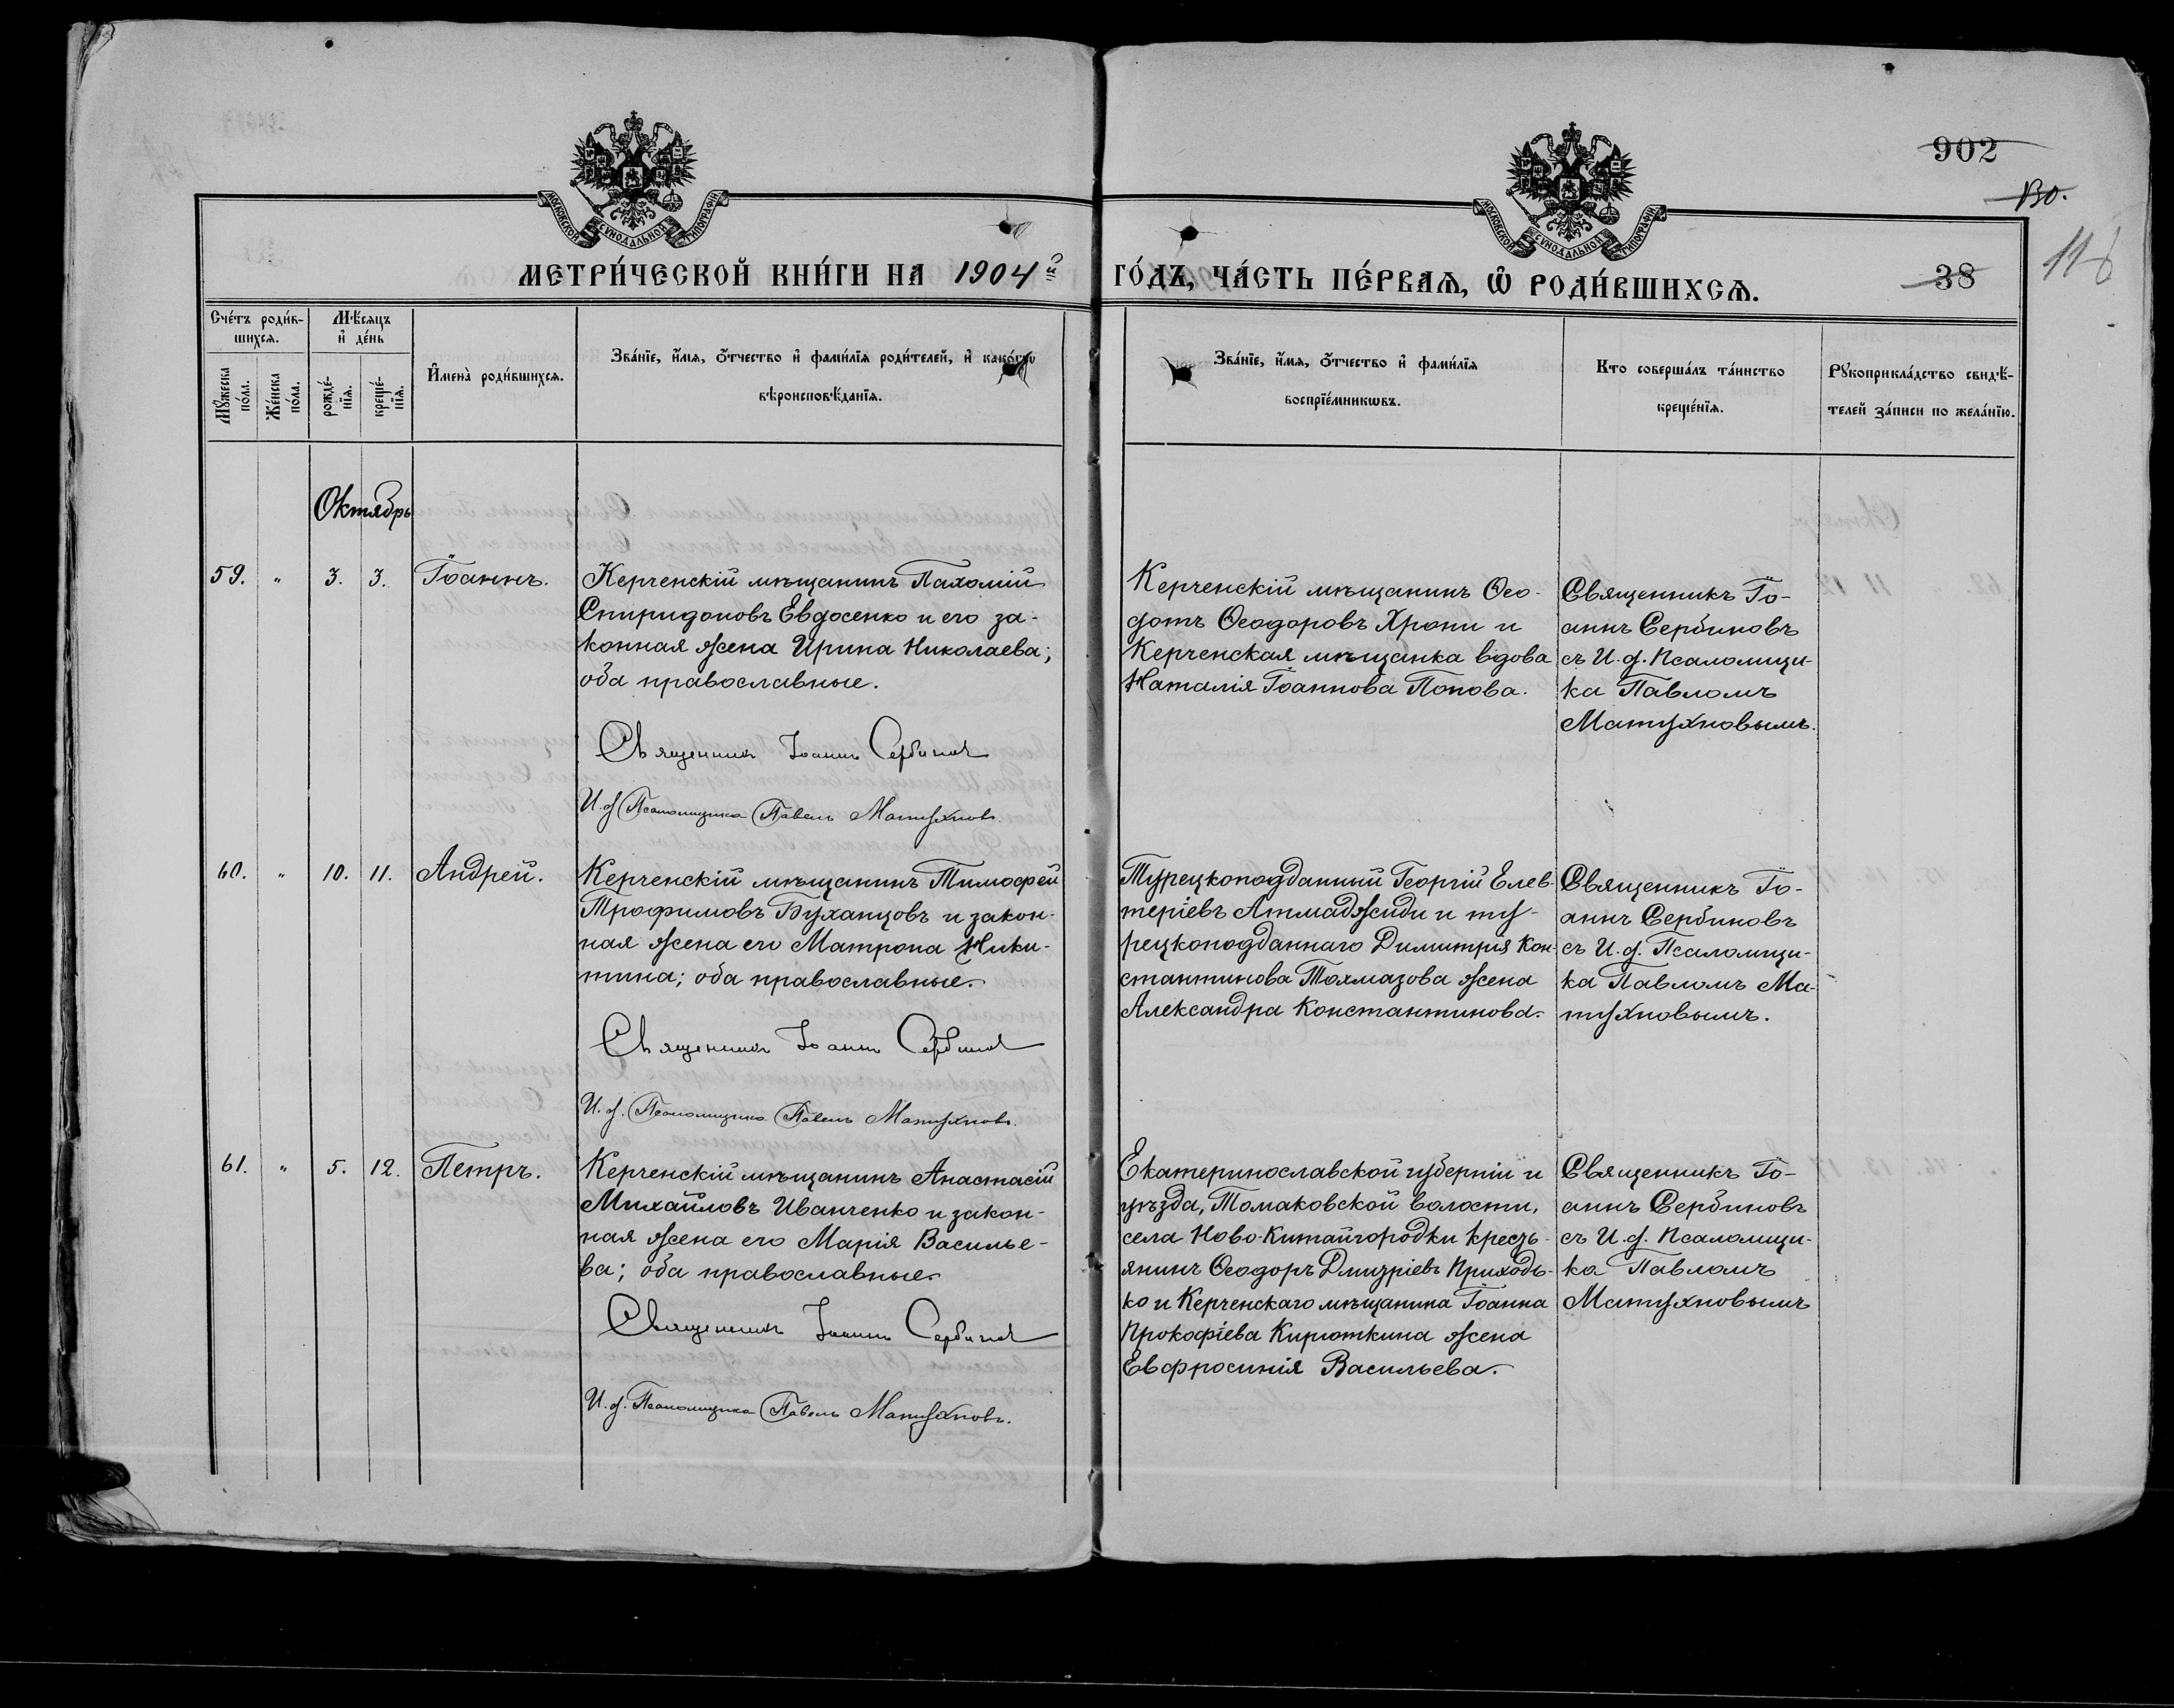 902
130.
118
38
МОСКОВСКОЙ СѴНОДАЛЬНОЙ ТИПОГРАФІИ
МОСКОВСКОЙ СѴНОДАЛЬНОЙ ТИПОГРАФІИ
МЕТРИ́ЧЕСКОЙ КНИ́ГИ НА 1904й ГО́ДЪ, ЧА́СТЬ ПЕ́РВАѦ, Ѡ҆ РОДИ́ВШИХСѦ.
Сче́тъ роди́в-
шихсѧ.
Мꙋ́жеска по́ла.
Же́нска по́ла.
Мѣ́сѧцъ
и҆ де́нь
рожде́-
нїѧ.
креще́-
нїѧ.
И҆мена̀ роди́вшихсѧ.
Зва́нїе, и҆́мѧ, о҆́тчество и҆ фами́лїѧ роди́телей, и҆ како́гѡ
вѣроисповѣ́данїѧ.
Зва́нїе, и҆́мѧ, о҆́тчество и҆ фами́лїѧ
воспрїе́мникѡвъ.
Кто соверша́лъ та́инство
креще́нїѧ.
Рꙋкоприкла́дство свидѣ́-
телей за́писи по жела́нїю.
Октябрь
59. „ 3. 3. Іоаннъ.
Керченскій мѣщанинъ Пахомій
Спиридоновъ Евдосенко и его за-
конная жена Ирина Николаева;
оба православные.
Священникъ Іоаннъ Сербиновъ
И.д. Псаломщика Павелъ Матухновъ.
Керченскій мѣщанинъ Ѳео-
дотъ Ѳеодоровъ Хрони и
Керченская мѣщанка вдова
Наталія Іоаннова Попова.
Священникъ Іо-
аннъ Сербиновъ
съ И.д. Псаломщи-
ка Павломъ
Матухновымъ.
60. „ 10. 11. Андрей.
Керченскій мѣщанинъ Тимофей
Трофимовъ Буханцовъ и закон-
ная жена его Матрона Ники-
тина; оба православные.
Священникъ Іоаннъ Сербиновъ
И.д. Псаломщика Павелъ Матухновъ.
Турецкоподданный Георгій Елев-
теріевъ Атмаджиди и ту-
рецкоподданнаго Димитрія Кон-
стантинова Тохмазова жена
Александра Константинова.
Священникъ Іо-
аннъ Сербиновъ
съ И.д. Псаломщи-
ка Павломъ Ма-
тухновымъ.
61. „ 5. 12. Петръ.
Керченскій мѣщанинъ Анастасій
Михайловъ Иванченко и закон-
ная жена его Марія Василье-
ва; оба православные.
Священникъ Іоаннъ Сербиновъ
И.д. Псаломщика Павелъ Матухновъ.
Екатеринославской губерніи и
уѣзда, Томаковской волости,
села Ново-Китайгородки кресть-
янинъ Ѳеодоръ Дмитріевъ Приходь-
ко и Керченскаго мѣщанина Іоанна
Прокофіева Кирюткина жена
Евфросинія Васильева.
Священникъ Іо-
аннъ Сербиновъ
съ И.д. Псаломщи-
ка Павломъ
Матухновымъ